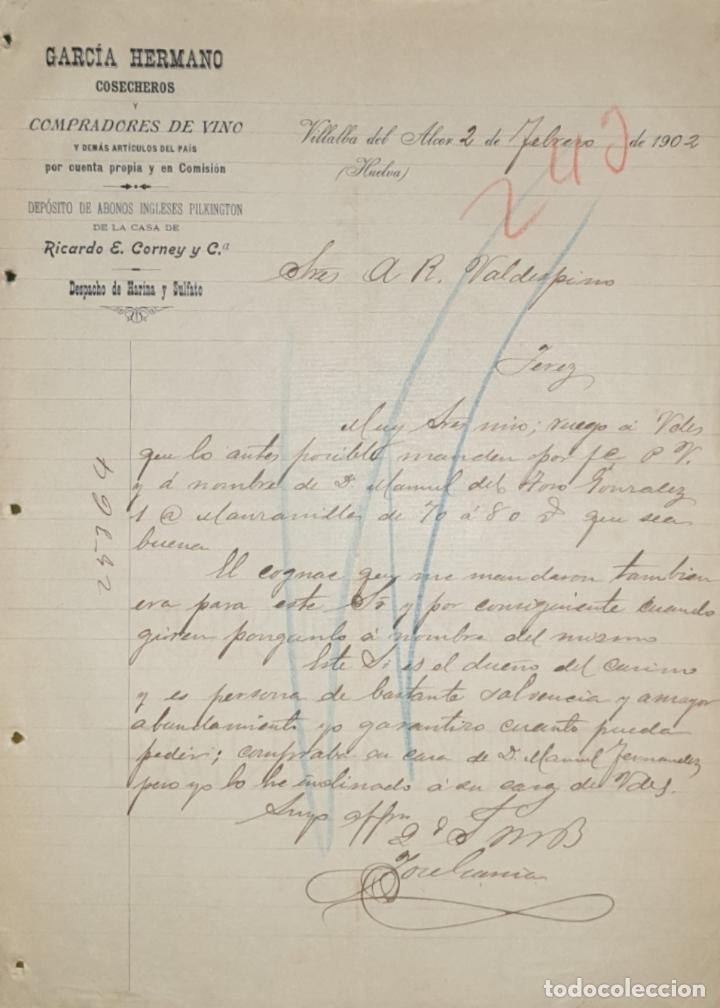 GARCÍA HERMANO
COSECHEROS
Y
COMPRADORES DE VINO
Y DEMÁS ARTÍCULOS DEL PAÍS
por cuenta propia y en Comisión
DEPÓSITO DE ABONOS INGLESES PILKINGTON
DE LA CASA DE
Ricardo E. Corney y C.ª
Despacho de Harina y Sulfato
Villalba del Alcor 2 de Febrero de 1902
(Huelva)
243
Sres A R. Valdespino
Jerez
Muy Sres mio; ruego á Vdes
que lo antes posible manden por fc P V.
y á nombre de D. Manuel del Toro Gonzalez
1 @ Manzanilla de 70 á 80 que sea
buena
El cognac que me mandaron tambien
era para este Sr y por consiguiente cuando
giren ponganlo á nombre del mismo
Este Sr es el dueño del casino
y es persona de bastante solvencia y a mayor
abundamiento yo garantizo cuanto pueda
pedir; compraba en casa de D. Manuel Fernandez
pero yo lo he inclinado á su casa de Vdes.
Suyo affmo
Jose Garcia
todocoleccion